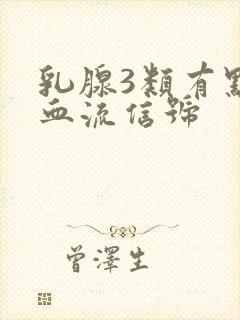 乳腺3類有點
血流信號
曾澤生